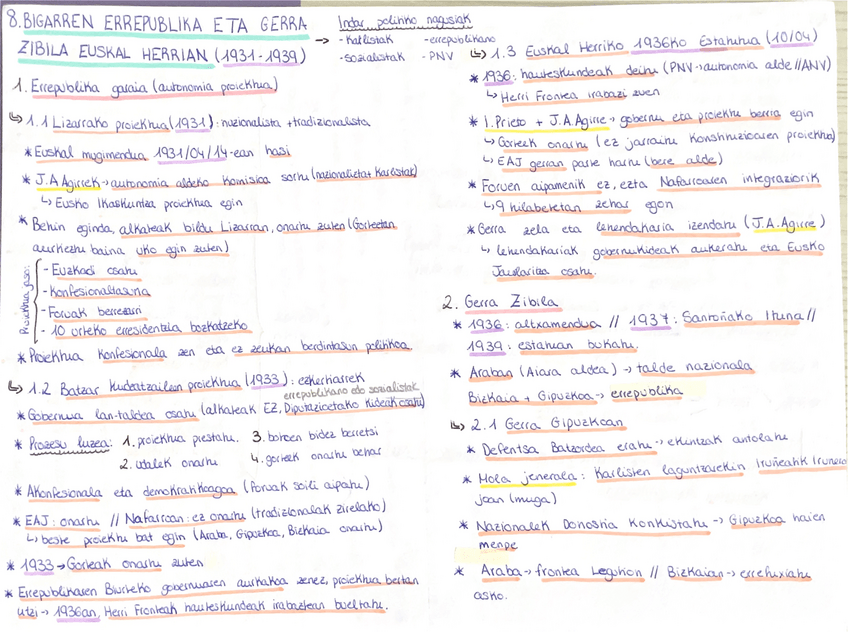 8.BIGARREN ERREPUBLIKA ETA GERRA
ZIBILA EUSKAL HERRIAN (1931-1939)
Indar politiko nagusiak
→ -Karlistak -errepublikano
-Sozialistak - PNV
1. Errepublika garaia (autonomia proiektua)
↳ 1.1 Lizarrako proiektua (1931): nazionalista + tradizionalista
* Euskal mugimendua 1931/04/14-ean hasi
* J.A Agirrek → autonomia aldeko komisioa sortu (nazionalistak + karlistak)
↳ Eusko Ikaskuntza proiektua egin
* Behin eginda, alkateak bildu Lizarran, onartu zuten (Gorteetan
aurkeztu baina uko egin zuten)
Proiektua
- Euzkadi osatu
- Konfesionaltasuna
- Foruak berrezarri
- 10 urteko erresidentzia bozkatzeko
* Proiektua konfesionala zen eta ez zeukan berdintasun politikoa.
↳ 1.2 Batzar kudeatzaileen proiektua (1933): ezkertiarrek
errepublikano edo sozialistak
* Gobernua lan-taldea osatu (alkateak EZ, Diputazioetako kideak osatu)
* Prozesu luzea: 1. proiektua prestatu. 3. botoen bidez berretsi
2. udalek onartu 4. gorteek onartu behar
* Akonfesionala eta demokratikoagoa (foruak soili aipatu)
* EAJ: onartu // Nafarroan: ez onartu (tradizionalak zirelako)
↳ beste proiektu bat egin (Araba, Gipuzkoa, Bizkaia onartu)
* 1933 → Gorteak onartu zuten
* Errepublikaren Biurteko gobernuaren aurkakoa zenez, proiektua bertan
utzi → 1936an, Herri Fronteak hauteskundeak irabaztean bueltatu.
↳ 1.3 Euskal Herriko 1936ko Estatutua (10/04)
* 1936: hauteskundeak deitu (PNV → autonomia alde // ANV)
↳ Herri Frontea irabazi zuen
* I. Prieto + J.A.Agirre → gobernu eta proiektu berria egin
↳ Gorteek onartu (ez jarraitu Konstituzioaren proiektua)
↳ EAJ gerran parte hartu (bere alde)
* Foruen aipamenik ez, ezta Nafarroaren integraziorik
↳ 9 hilabetetan zehar egon
* Gerra zela eta lehendakaria izendatu (J.A.Agirre)
↳ lehendakariak gobernukideak aukeratu eta Eusko
Jaurlaritza osatu.
2. Gerra Zibila
* 1936: altxamendua // 1937: Santoñako Ituna //
1939: estatuan bukatu.
* Araban (Aiara aldea) → talde nazionala
Bizkaia + Gipuzkoa → errepublika
↳ 2.1 Gerra Gipuzkoan
* Defentsa Batzordea eratu → ekintzak antolatu
* Mola jenerala: Karlisten laguntzarekin Iruñeatik Irunera
joan (muga)
* Nazionalek Donostia konkistatu → Gipuzkoa haien
menpe
* Araba → frontea Legution // Bizkaian → errefuxiatu
asko.